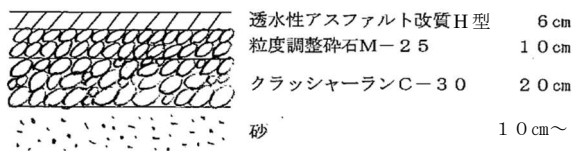 透水性アスファルト改質H型 6㎝
粒度調整砕石M－25 10㎝
クラッシャーランC－30 20㎝
砂 10㎝～